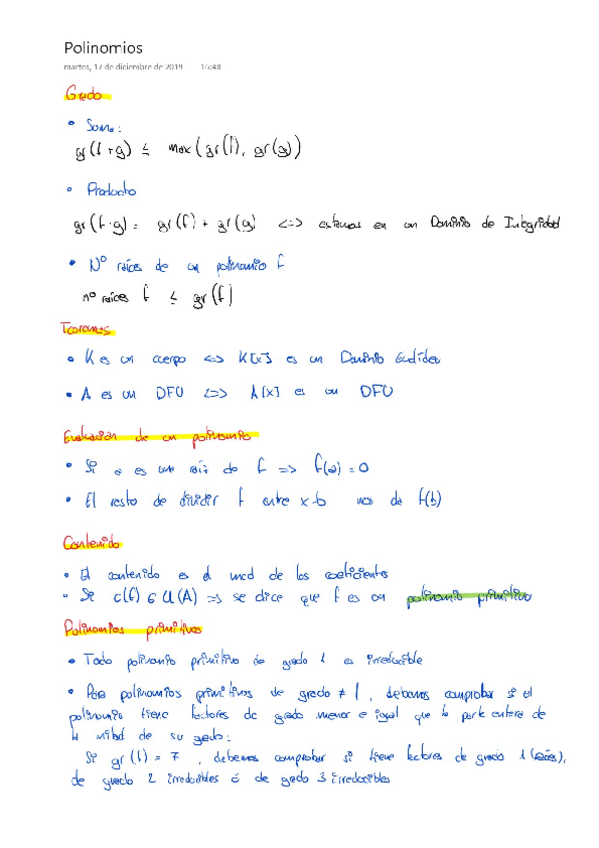 Polinomios
martes, 17 de diciembre de 2019 16:48
Grado
• Suma:
gr(f+g) ≤ max(gr(f), gr(g))
• Producto
gr(f·g) = gr(f) + gr(g) <=> estamos en un Dominio de Integridad
• Nº raíces de un polinomio f
nº raíces f ≤ gr(f)
Teoremas
• K es un cuerpo <=> K[x] es un Dominio Euclídeo
• A es un DFU <=> A[x] es un DFU
Evaluación de un polinomio
• Si a es una raíz de f => f(a) = 0
• El resto de dividir f entre x-b nos da f(b)
Contenido
• El contenido es el mcd de los coeficientes
• Si c(f) ∈ U(A) => se dice que f es un polinomio primitivo
Polinomios primitivos
• Todo polinomio primitivo de grado 1 es irreducible
• Para polinomios primitivos de grado ≠ 1, debemos comprobar si el
polinomio tiene factores de grado menor o igual que la parte entera de
la mitad de su grado:
Si gr(f) = 7, debemos comprobar si tiene factores de grado 1 (raíces),
de grado 2 irreducibles ó de grado 3 irreducibles